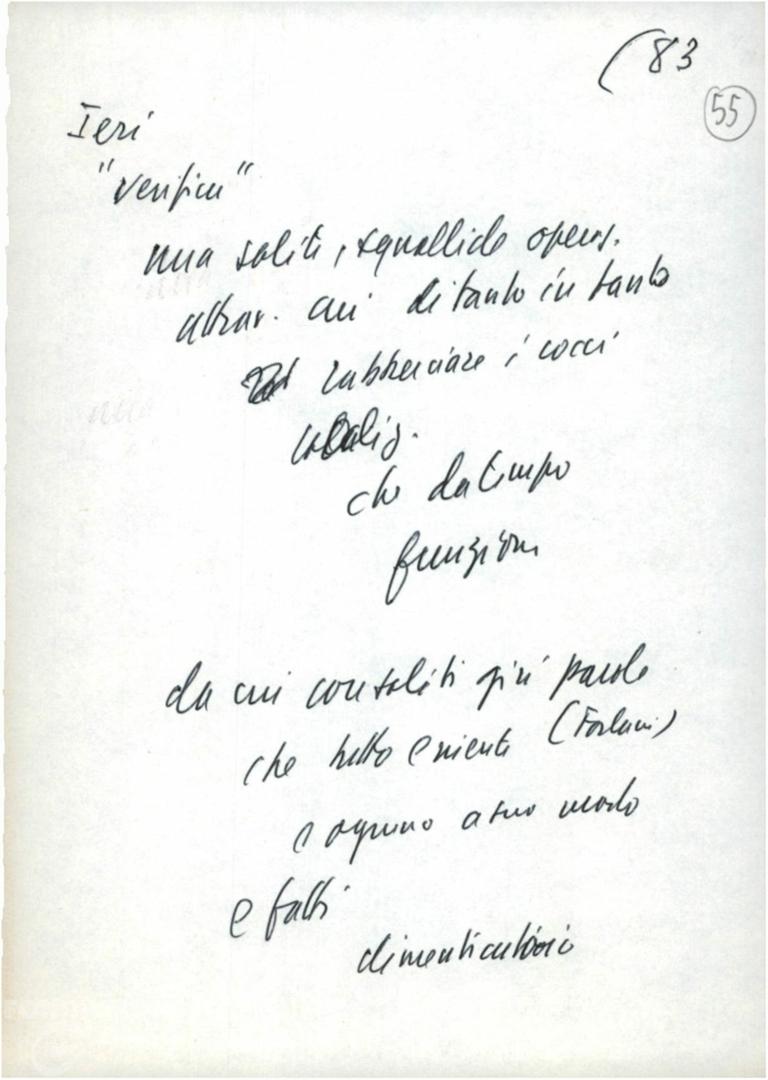 (83
55
Ieri
"verifica"
una solita, squallida operaz.
attrav. cui di tanto in tanto
rabberciare i cocci
coaliz.
che da tempo
funziona
da cui con soliti giri parole
che tutto e niente (Forlani)
e ognuno a suo modo
e fatti
dimenticatoio